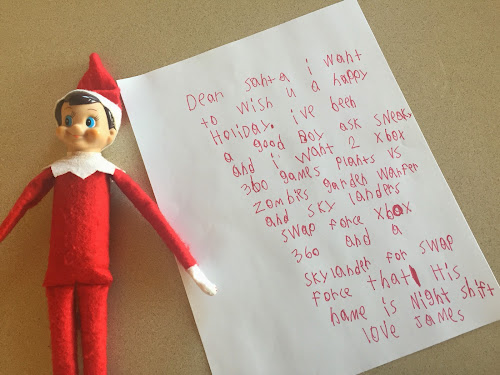 Dear santa i want
to wish u a happy
Holiday. i've been
a good Boy ask sneaky
and i want 2 xbox
360 games Plants vs
zombies garden warfer
and sky landers
swap force xbox
360 and a
skylander for swap
force that His
name is Night shift
love James